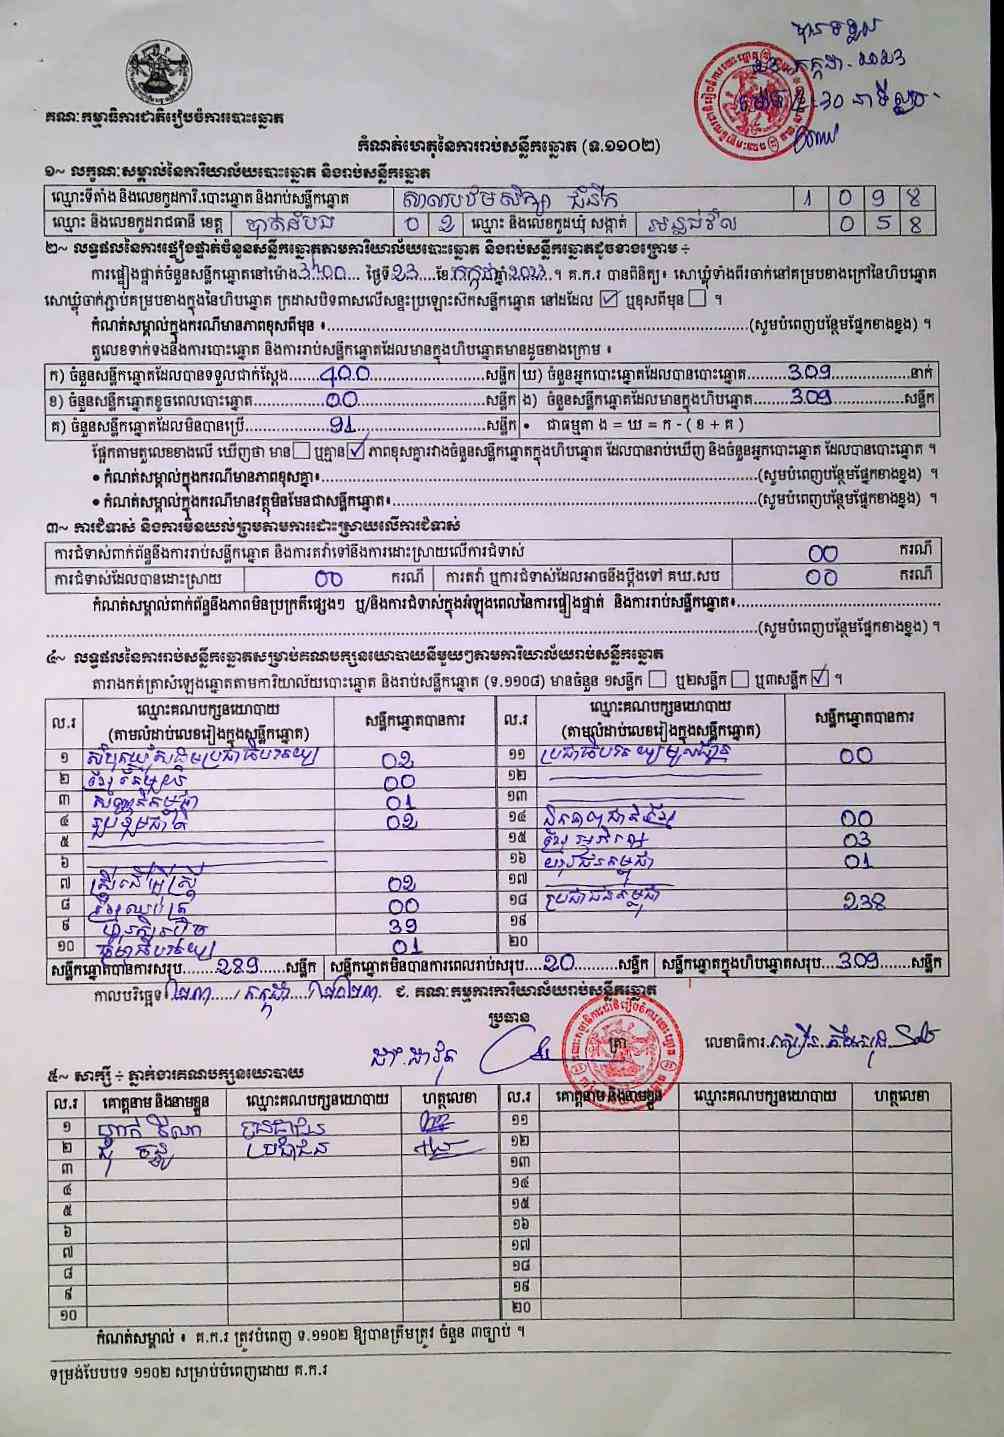 បានទទួល
គណៈកម្មាធិការជាតិរៀបចំការបោះឆ្នោត
កំណត់ហេតុនៃការរាប់សន្លឹកឆ្នោត (ទ.១១០២)
១~ លក្ខណៈសម្គាល់នៃការិយាល័យបោះឆ្នោត និងរាប់សន្លឹកឆ្នោត
ឈ្មោះទីតាំង និងលេខកូដការិ.បោះឆ្នោត និងរាប់សន្លឹកឆ្នោត សាលាបឋមសិក្សា ជំនីក 1 0 9 8
ឈ្មោះ និងលេខកូដរាជធានី ខេត្ត បាត់ដំបង 0 2 ឈ្មោះ និងលេខកូដឃុំ សង្កាត់ អន្លង់វិល 0 5 8
២~ លទ្ធផលនៃការផ្ទៀងផ្ទាត់ចំនួនសន្លឹកឆ្នោតតាមការិយាល័យបោះឆ្នោត និងរាប់សន្លឹកឆ្នោតដូចខាងក្រោម ÷
ការផ្ទៀងផ្ទាត់ចំនួនសន្លឹកឆ្នោតនៅម៉ោង 3:00 ថ្ងៃទី 23 ខែ កក្កដា ឆ្នាំ 2023 ។ គ.ក.រ បានពិនិត្យ៖ សោឃ្លុំទាំងពីរចាក់នៅគម្របខាងក្រៅនៃហិបឆ្នោត
សោឃ្លុំចាក់ភ្ជាប់គម្របខាងក្នុងនៃហិបឆ្នោត ក្រដាសបិទពាសលើសន្ទះប្រឡោះស៊កសន្លឹកឆ្នោត នៅដដែល ☑ ឬខុសពីមុន ☐ ។
កំណត់សម្គាល់ក្នុងករណីមានភាពខុសពីមុន ៖ (សូមបំពេញបន្ថែមផ្នែកខាងខ្នង) ។
តួលេខទាក់ទងនឹងការបោះឆ្នោត និងការរាប់សន្លឹកឆ្នោតដែលមានក្នុងហិបឆ្នោតមានដូចខាងក្រោម ៖
ក) ចំនួនសន្លឹកឆ្នោតដែលបានទទួលជាក់ស្តែង 400 សន្លឹក ឃ) ចំនួនអ្នកបោះឆ្នោតដែលបានបោះឆ្នោត 309 នាក់
ខ) ចំនួនសន្លឹកឆ្នោតខូចពេលបោះឆ្នោត 00 សន្លឹក ង) ចំនួនសន្លឹកឆ្នោតដែលមានក្នុងហិបឆ្នោត 309 សន្លឹក
គ) ចំនួនសន្លឹកឆ្នោតដែលមិនបានប្រើ 91 សន្លឹក • ជាធម្មតា ង = ឃ = ក - ( ខ + គ )
ផ្អែកតាមតួលេខខាងលើ ឃើញថា មាន ☐ ឬគ្មាន ☑ ភាពខុសគ្នារវាងចំនួនសន្លឹកឆ្នោតក្នុងហិបឆ្នោត ដែលបានរាប់ឃើញ និងចំនួនអ្នកបោះឆ្នោត ដែលបានបោះឆ្នោត ។
• កំណត់សម្គាល់ក្នុងករណីមានភាពខុសគ្នា៖ (សូមបំពេញបន្ថែមផ្នែកខាងខ្នង) ។
• កំណត់សម្គាល់ក្នុងករណីមានវត្ថុមិនមែនជាសន្លឹកឆ្នោត៖ (សូមបំពេញបន្ថែមផ្នែកខាងខ្នង) ។
៣~ ការជំទាស់ និងការមិនយល់ព្រមតាមការដោះស្រាយលើការជំទាស់
ការជំទាស់ពាក់ព័ន្ធនឹងការរាប់សន្លឹកឆ្នោត និងការតវ៉ាទៅនឹងការដោះស្រាយលើការជំទាស់ 00 ករណី
ការជំទាស់ដែលបានដោះស្រាយ 00 ករណី ការតវ៉ា ឬការជំទាស់ដែលអាចនឹងប្តឹងទៅ គឃ.សប 00 ករណី
កំណត់សម្គាល់ពាក់ព័ន្ធនឹងភាពមិនប្រក្រតីផ្សេងៗ ឬ/និងការជំទាស់ក្នុងអំឡុងពេលនៃការផ្ទៀងផ្ទាត់ និងការរាប់សន្លឹកឆ្នោត៖
(សូមបំពេញបន្ថែមផ្នែកខាងខ្នង) ។
៤~ លទ្ធផលនៃការរាប់សន្លឹកឆ្នោតសម្រាប់គណបក្សនយោបាយនីមួយៗតាមការិយាល័យរាប់សន្លឹកឆ្នោត
តារាងកត់ត្រាសំឡេងឆ្នោតតាមការិយាល័យបោះឆ្នោត និងរាប់សន្លឹកឆ្នោត (ទ.១១០៨) មានចំនួន ១សន្លឹក ☐ ឬ២សន្លឹក ☐ ឬ៣សន្លឹក ☑ ។
ល.រ ឈ្មោះគណបក្សនយោបាយ (តាមលំដាប់លេខរៀងក្នុងសន្លឹកឆ្នោត) សន្លឹកឆ្នោតបានការ ល.រ ឈ្មោះគណបក្សនយោបាយ (តាមលំដាប់លេខរៀងក្នុងសន្លឹកឆ្នោត) សន្លឹកឆ្នោតបានការ
១ សំបុកឃ្មុំសង្គមប្រជាធិបតេយ្យ 02 ១១ ប្រជាធិបតេយ្យមូលដ្ឋាន 00
២ ខ្មែររួបរួមជាតិ 00 ១២
៣ 01 ១៣
៤ 02 ១៤ ឯកភាពជាតិខ្មែរ 00
៥ ១៥ ខ្មែរអភិរក្ស 03
៦ ១៦ យុវជនកម្ពុជា 01
៧ ស្រ្តីដើម្បីស្ត្រី 02 ១៧
៨ 00 ១៨ ប្រជាជនកម្ពុជា 238
៩ ហ៊្វុនស៊ិនប៉ិច 39 ១៩
១០ ធម្មាធិបតេយ្យ 01 ២០
សន្លឹកឆ្នោតបានការសរុប 289 សន្លឹក សន្លឹកឆ្នោតមិនបានការពេលរាប់សរុប 20 សន្លឹក សន្លឹកឆ្នោតក្នុងហិបឆ្នោតសរុប 309 សន្លឹក
កាលបរិច្ឆេទ ២៣ / កក្កដា / ២០២៣ ជ. គណៈកម្មការការិយាល័យរាប់សន្លឹកឆ្នោត
ប្រធាន
ត្រា
លេខាធិការ
៥~ សាក្សី ÷ ភ្នាក់ងារគណបក្សនយោបាយ
ល.រ គោត្តនាម និងនាមខ្លួន ឈ្មោះគណបក្សនយោបាយ ហត្ថលេខា ល.រ គោត្តនាម និងនាមខ្លួន ឈ្មោះគណបក្សនយោបាយ ហត្ថលេខា
១ ១១
២ ប្រជាជន ១២
៣ ១៣
៤ ១៤
៥ ១៥
៦ ១៦
៧ ១៧
៨ ១៨
៩ ១៩
១០ ២០
កំណត់សម្គាល់ ៖ គ.ក.រ ត្រូវបំពេញ ទ.១១០២ ឱ្យបានត្រឹមត្រូវ ចំនួន ៣ច្បាប់ ។
ទម្រង់បែបបទ ១១០២ សម្រាប់បំពេញដោយ គ.ក.រ